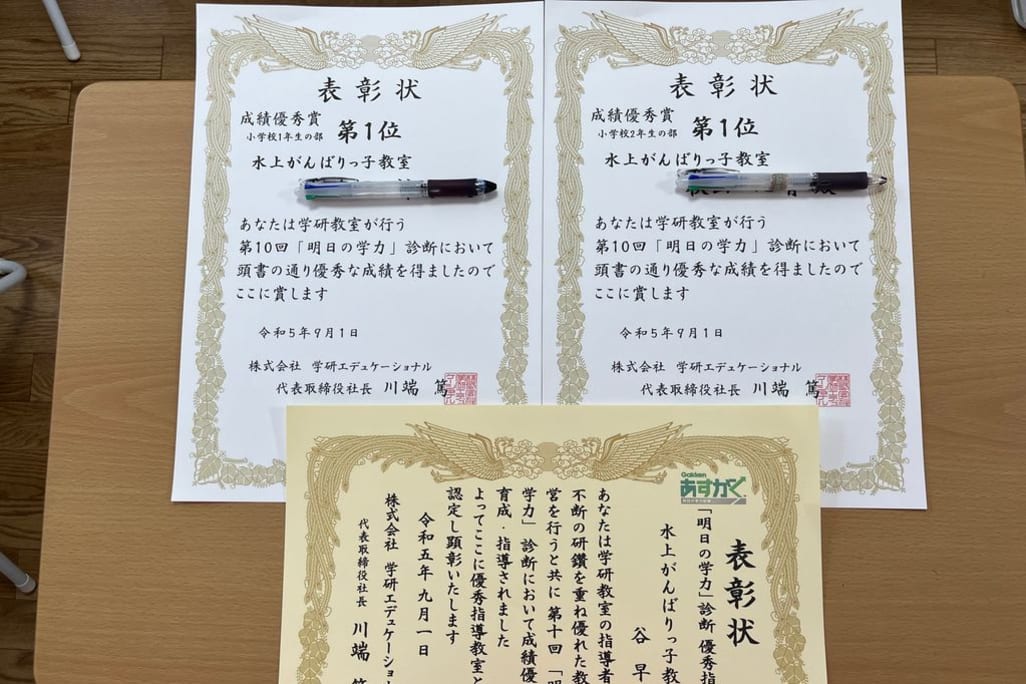 表彰状
成績優秀賞
小学校1年生の部 第1位
水上がんばりっ子教室
あなたは学研教室が行う
第10回「明日の学力」診断において
頭書の通り優秀な成績を得ましたので
ここに賞します
令和5年9月1日
株式会社 学研エデュケーショナル
代表取締役社長 川端 篤
表彰状
成績優秀賞
小学校2年生の部 第1位
水上がんばりっ子教室
あなたは学研教室が行う
第10回「明日の学力」診断において
頭書の通り優秀な成績を得ましたので
ここに賞します
令和5年9月1日
株式会社 学研エデュケーショナル
代表取締役社長 川端 篤
Gakken
あすかく
表彰状
「明日の学力」診断 優秀指
水上がんばりっ子教
谷 早
あなたは学研教室の指導者
不断の研鑽を重ね優れた教
営を行うと共に 第十回「明
学力」診断において成績優
育成・指導されました
よってここに優秀指導教室と
認定し顕彰いたします
令和五年九月一日
株式会社 学研エデュケーショナ
代表取締役社長 川端